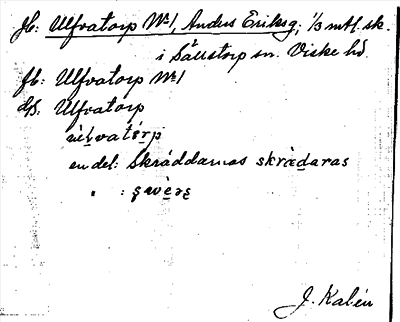 Jb: Ulfvatorp Nº 1, Anders Eriksg; 1/3 mtl. sk.
i Sällstorp sn. Viske hd
fb: Ulfvatorp Nº 1
ds: Ulfvatorp
en del: Skräddarnas skrædaras
" :
J. Kalén